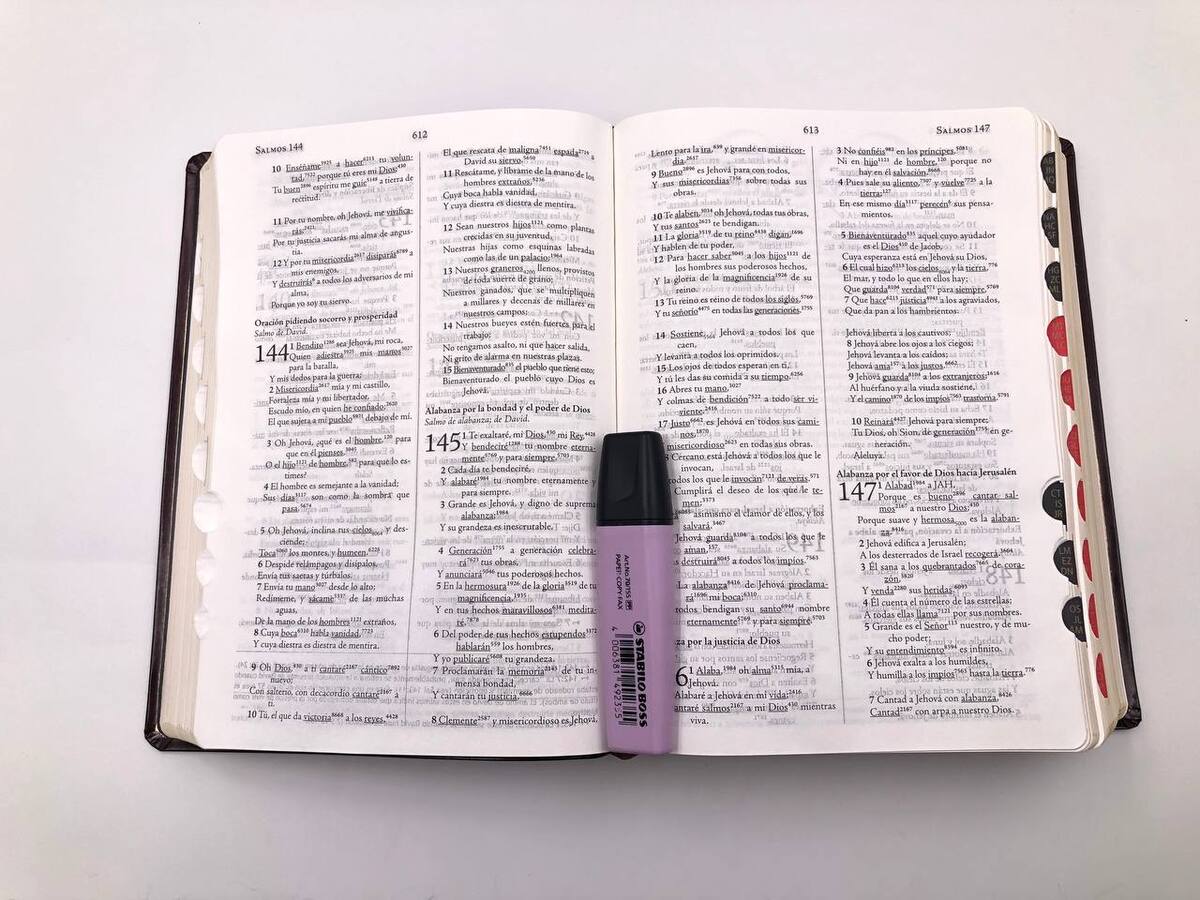 SALMOS 144
612
10 Enséñame3925 a hacer6213 tu volun-
tad,7522 porque tú eres mi Dios;430
Tu buen2896 espíritu me guíe5148 a tierra de
rectitud.
11 Por tu nombre, oh Jehová, me vivifica-
rás;2421
Por tu justicia sacarás mi alma de angus-
tia.
12 Y por tu misericordia2617 disiparás6789 a
mis enemigos,
Y destruirás6 a todos los adversarios de mi
alma,
Porque yo soy tu siervo.
Oración pidiendo socorro y prosperidad
Salmo de David.
144 1 Bendito1288 sea Jehová, mi roca,
Quien adiestra3925 mis manos3027
para la batalla,
Y mis dedos para la guerra;
2 Misericordia2617 mía y mi castillo,
Fortaleza mía y mi libertador,
Escudo mío, en quien he confiado;2620
El que sujeta a mi pueblo5971 debajo de mí.
3 Oh Jehová, ¿qué es el hombre,120 para
que en él pienses,3045
O el hijo1121 de hombre,582 para que lo es-
times?
4 El hombre es semejante a la vanidad;
Sus días3117 son como la sombra que
pasa.5674
5 Oh Jehová, inclina tus cielos y des-
ciende;
Toca5060 los montes, y humeen.6225
6 Despide relámpagos y disípalos,
Envía tus saetas y túrbalos.
7 Envía tu mano3027 desde lo alto;
Redímeme, y sácame5337 de las muchas
aguas,
De la mano de los hombres1121 extraños,
8 Cuya boca6310 habla vanidad,7723
Y cuya diestra es diestra de mentira.
9 Oh Dios,430 a ti cantaré2167 cántico7892
nuevo;
Con salterio, con decacordio cantaré2167 a
ti.
10 Tú, el que da victoria8668 a los reyes,4428
El que rescata de maligna7451 espada2719 a
David su siervo.5650
11 Rescátame, y líbrame de la mano de los
hombres extraños,5236
Cuya boca habla vanidad,
Y cuya diestra es diestra de mentira.
12 Sean nuestros hijos1121 como plantas
crecidas en su juventud,
Nuestras hijas como esquinas labradas
como las de un palacio;1964
13 Nuestros graneros4200 llenos, provistos
de toda suerte de grano;
Nuestros ganados, que se multipliquen
a millares y decenas de millares en
nuestros campos;
14 Nuestros bueyes estén fuertes para el
trabajo;
No tengamos asalto, ni que hacer salida,
Ni grito de alarma en nuestras plazas.
15 Bienaventurado835 el pueblo que tiene esto;
Bienaventurado el pueblo cuyo Dios es
Jehová.
Alabanza por la bondad y el poder de Dios
Salmo de alabanza; de David.
145 1 Te exaltaré, mi Dios,430 mi Rey,4428
Y bendeciré1288 tu nombre eterna-
mente5769 y para siempre.5703
2 Cada día te bendeciré,
Y alabaré1984 tu nombre eternamente y
para siempre.
3 Grande es Jehová, y digno de suprema
alabanza;1984
Y su grandeza es inescrutable.
4 Generación1755 a generación celebra-
rá7623 tus obras,
Y anunciará5046 tus poderosos hechos.
5 En la hermosura1926 de la gloria3519 de tu
magnificencia,1935
Y en tus hechos maravillosos6381 medita-
ré.7878
6 Del poder de tus hechos estupendos3372
hablarán559 los hombres,
Y yo publicaré5608 tu grandeza.
7 Proclamarán la memoria2143 de tu in-
mensa bondad,
Y cantarán tu justicia.6666
8 Clemente2587 y misericordioso es Jehová,
613
SALMOS 147
Lento para la ira,639 y grande en misericor-
dia.2617
9 Bueno2896 es Jehová para con todos,
Y sus misericordias7356 sobre todas sus
obras.
10 Te alaben,3034 oh Jehová, todas tus obras,
Y tus santos2623 te bendigan.
11 La gloria3519 de tu reino4438 digan,1696
Y hablen de tu poder,
12 Para hacer saber3045 a los hijos1121 de
los hombres sus poderosos hechos,
Y la gloria de la magnificencia1926 de su
reino.
13 Tu reino es reino de todos los siglos,5769
Y tu señorío4475 en todas las generaciones.1755
14 Sostiene Jehová a todos los que
caen,
Y levanta a todos los oprimidos.
15 Los ojos de todos esperan en ti,
Y tú les das su comida a su tiempo.6256
16 Abres tu mano,3027
Y colmas de bendición7522 a todo ser vi-
viente.2416
17 Justo6662 es Jehová en todos sus cami-
nos,1870
misericordioso2623 en todas sus obras.
Cercano está Jehová a todos los que le
invocan,
todos los que le invocan7121 de veras.571
Cumplirá el deseo de los que le te-
men;3373
asimismo el clamor de ellos, y los
salvará.3467
Jehová guarda8104 a todos los que le
aman,157
destruirá8045 a todos los impíos.7563
La alabanza8416 de Jehová proclama-
rá1696 mi boca;6310
todos bendigan su santo6944 nombre
eternamente5769 y para siempre.5703
za por la justicia de Dios
6 1 Alaba,1984 oh alma5315 mía, a
Jehová.
Alabaré a Jehová en mi vida;2416
cantaré salmos2167 a mi Dios430 mientras
viva.
3 No confiéis982 en los príncipes,5081
Ni en hijo1121 de hombre,120 porque no
hay en él salvación.8668
4 Pues sale su aliento,7307 y vuelve7725 a la
tierra;127
En ese mismo día3117 perecen6 sus pensa-
mientos.
5 Bienaventurado835 aquel cuyo ayudador
es el Dios410 de Jacob,
Cuya esperanza está en Jehová su Dios,
6 El cual hizo6213 los cielos y la tierra,776
El mar, y todo lo que en ellos hay;
Que guarda8104 verdad571 para siempre,5769
7 Que hace6213 justicia4941 a los agraviados,
Que da pan a los hambrientos.
Jehová liberta a los cautivos;
8 Jehová abre los ojos a los ciegos;
Jehová levanta a los caídos;
Jehová ama157 a los justos.6662
9 Jehová guarda8104 a los extranjeros;1616
Al huérfano y a la viuda sostiene,
Y el camino1870 de los impíos7563 trastorna.5791
10 Reinará4427 Jehová para siempre;
Tu Dios, oh Sion, de generación1755 en ge-
neración.
Aleluya.
Alabanza por el favor de Dios hacia Jerusalén
147 1 Alabad1984 a JAH,
Porque es bueno2896 cantar sal-
mos2167 a nuestro Dios;430
Porque suave y hermosa5000 es la alaban-
za.
2 Jehová edifica a Jerusalén;
A los desterrados de Israel recogerá.3664
3 Él sana a los quebrantados7665 de cora-
zón,3820
Y venda2280 sus heridas.6093
4 Él cuenta el número de las estrellas;
A todas ellas llama7121 por sus nombres.
5 Grande es el Señor113 nuestro, y de mu-
cho poder;
Y su entendimiento8394 es infinito.
6 Jehová exalta a los humildes,
Y humilla a los impíos7563 hasta la tierra.776
7 Cantad a Jehová con alabanza,8426
Cantad2167 con arpa a nuestro Dios.
STABILO BOSS
PAPER COPY FAX
4 006381 492355
CT
IS
JR
LM
EZ
ON